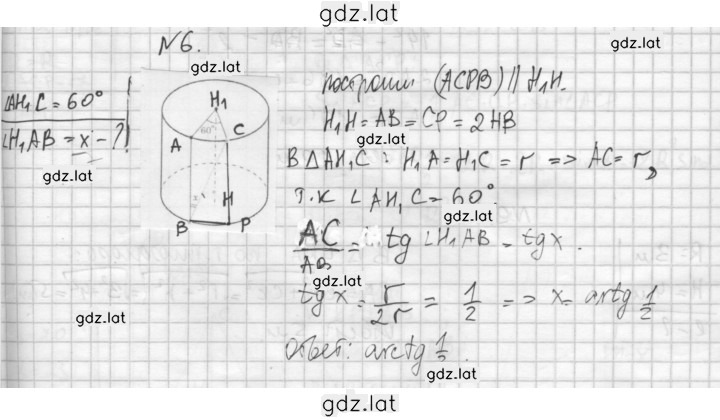 gdz.lat
N6.
gdz.lat
gdz.lat
∠AH₁C = 60°
∠H₁AB = x - ?
gdz.lat
H₁
60°
A
C
x
H
B
P
построим (ACPB) || H₁H.
H₁H = AB = CP = 2HB
gdz.lat
В △AH₁C : H₁A = H₁C = r => AC = r,
т.к ∠AH₁C = 60°.
AC/AB = tg ∠H₁AB = tg x.
gdz.lat
tg x = r/2r = 1/2 => x = arctg 1/2
gdz.lat
Ответ: arctg 1/2.
gdz.lat
gdz.lat